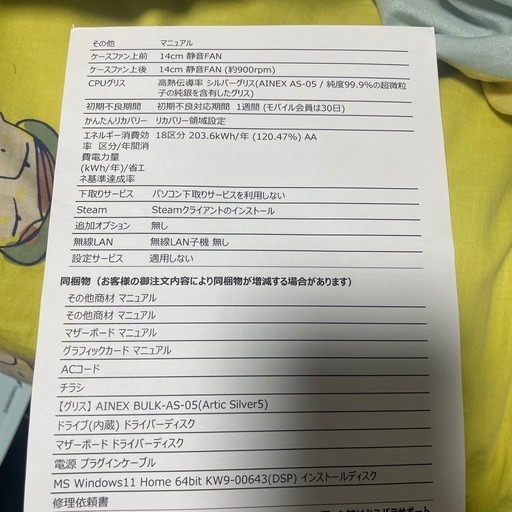 その他 マニュアル
ケースファン上前 14cm 静音FAN
ケースファン上後 14cm 静音FAN (約900rpm)
CPUグリス 高熱伝導率 シルバーグリス(AINEX AS-05 / 純度99.9%の超微粒
子の純銀を含有したグリス)
初期不良期間 初期不良対応期間 1週間 (モバイル会員は30日)
かんたんリカバリー リカバリー領域設定
エネルギー消費効 18区分 203.6kWh/年 (120.47%) AA
率 区分/年間消
費電力量
(kWh/年)/省エ
ネ基準達成率
下取りサービス パソコン下取りサービスを利用しない
Steam Steamクライアントのインストール
追加オプション 無し
無線LAN 無線LAN子機 無し
設定サービス 適用しない
同梱物（お客様の御注文内容により同梱物が増減する場合があります）
その他商材 マニュアル
その他商材 マニュアル
マザーボード マニュアル
グラフィックカード マニュアル
ACコード
チラシ
【グリス】AINEX BULK-AS-05(Artic Silver5)
ドライブ(内蔵) ドライバーディスク
マザーボード ドライバーディスク
電源 プラグインケーブル
MS Windows11 Home 64bit KW9-00643(DSP) インストールディスク
修理依頼書